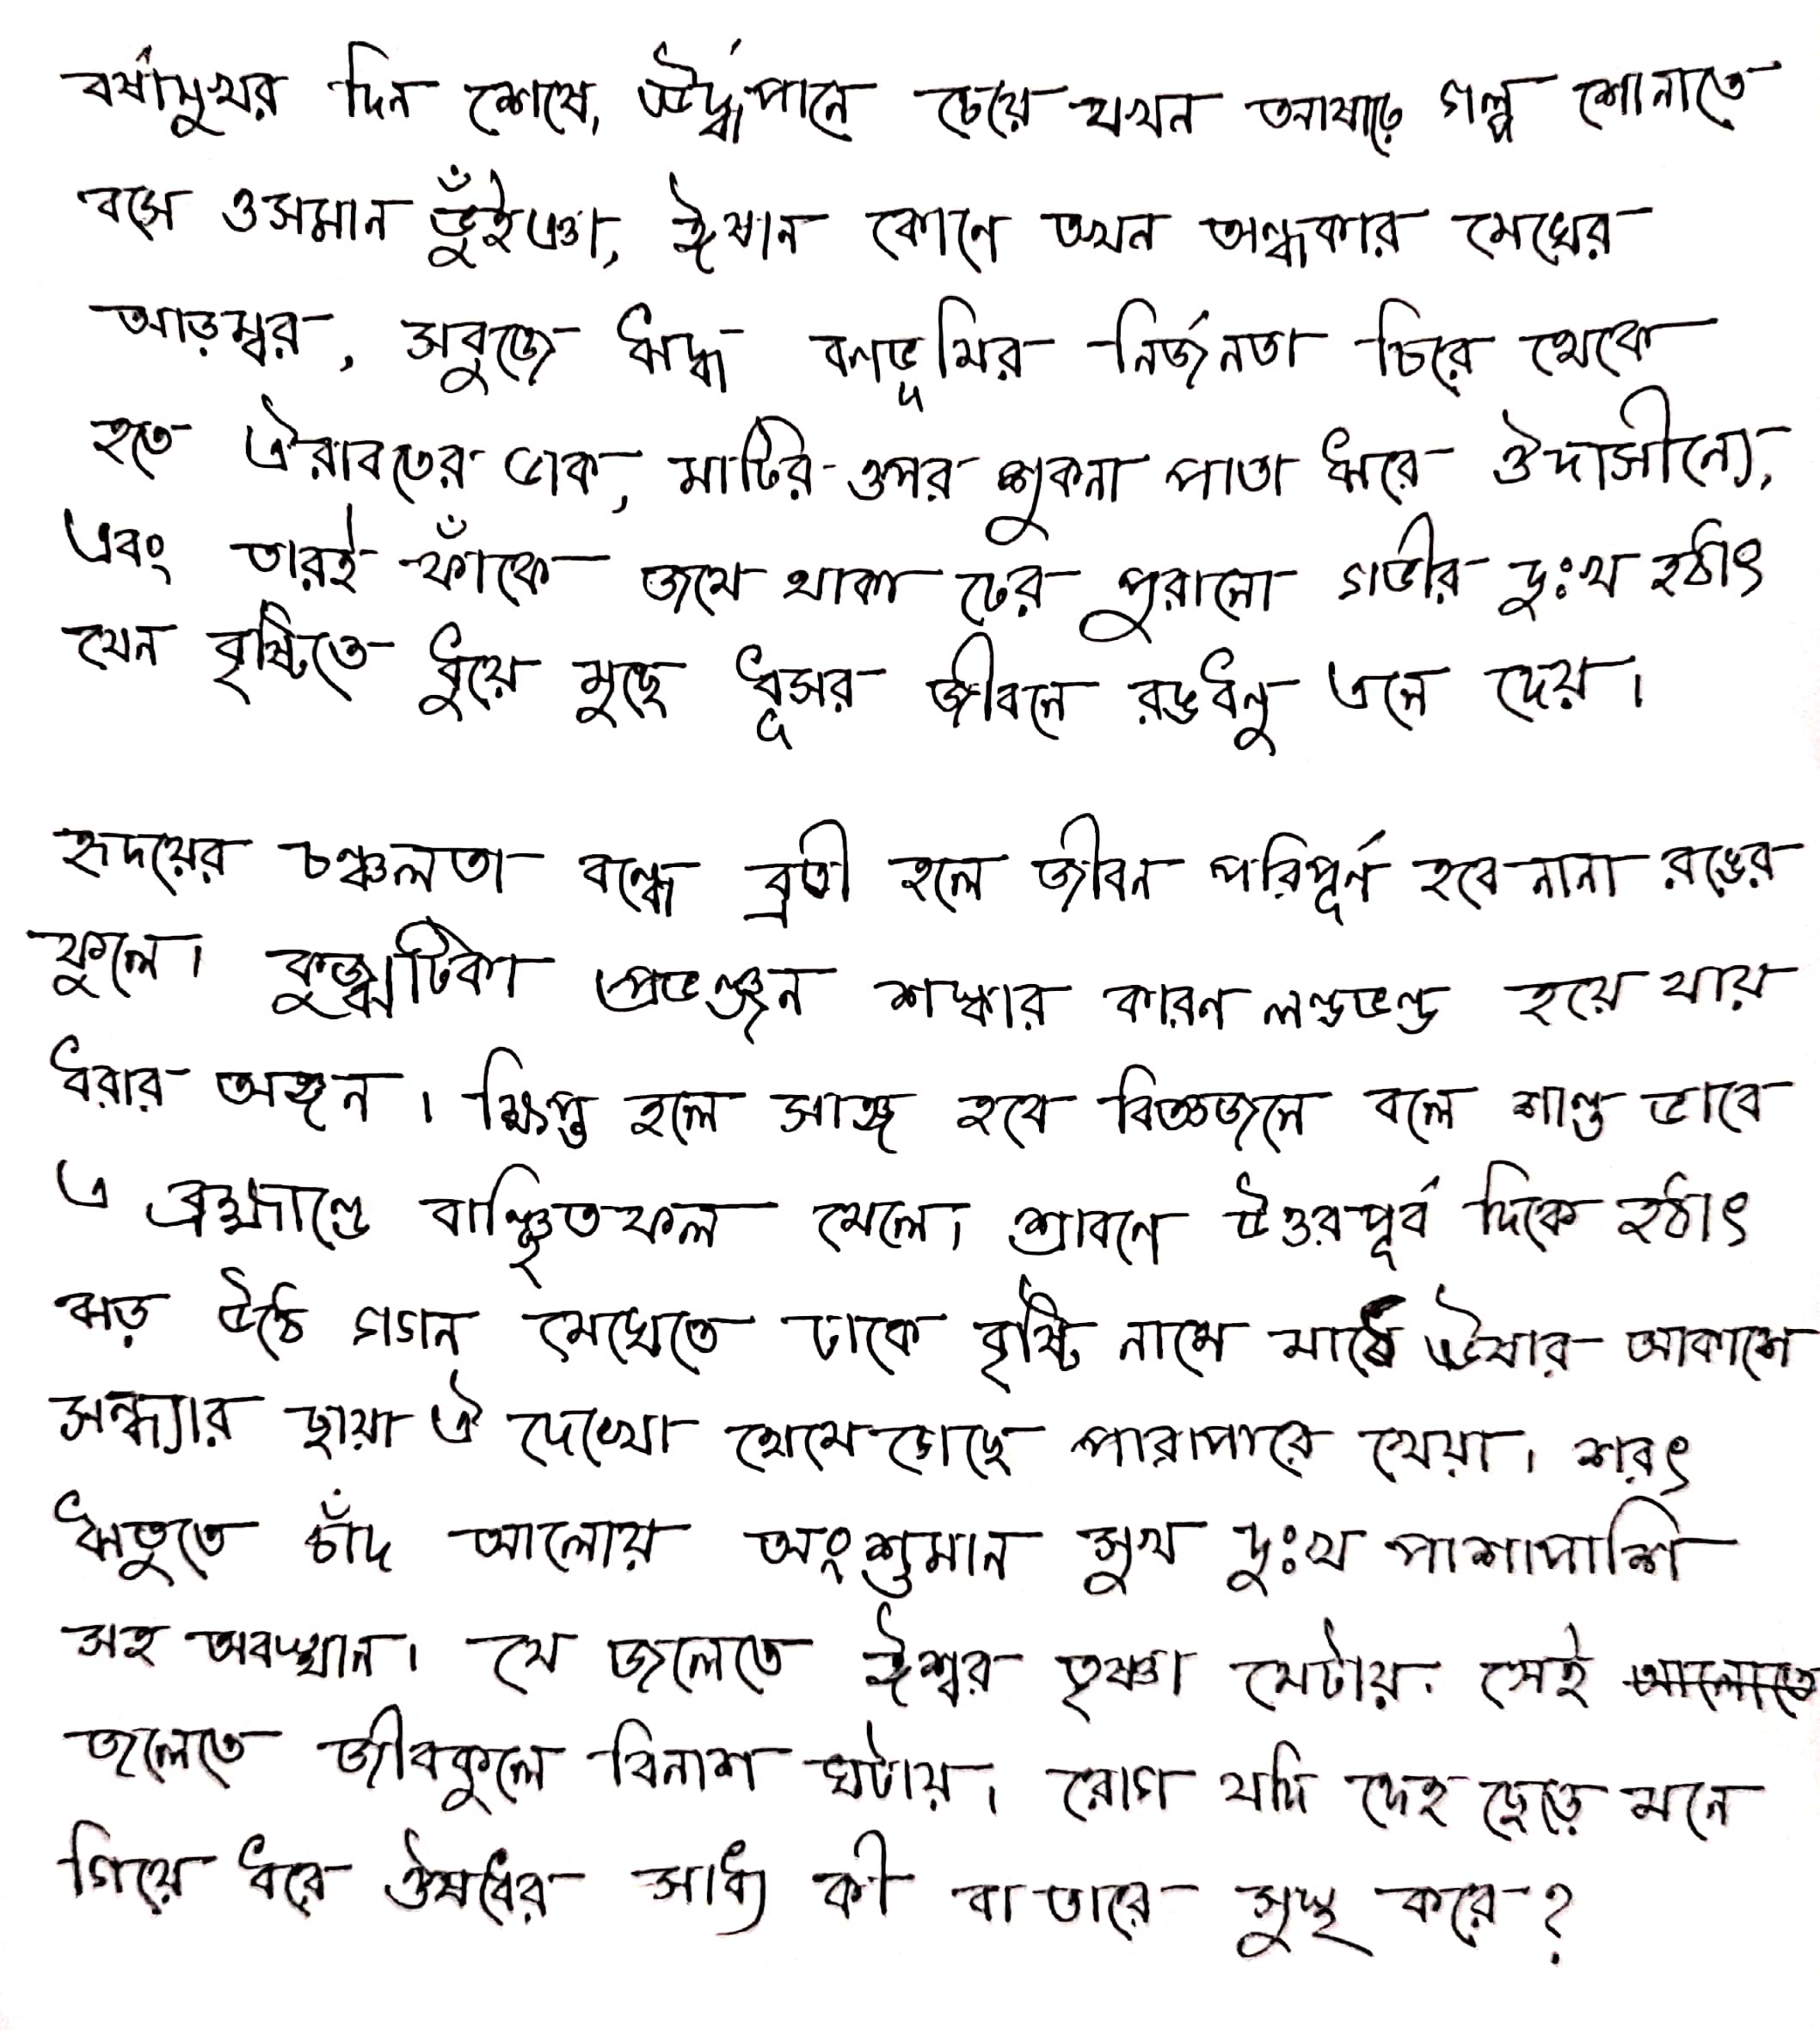 বর্ষামুখর দিন শেষে, ঊর্দ্ধপানে চেয়ে যখন আষাঢ়ে গল্প শোনাতে
বসে ওসমান ভুঁইঞা, ঈষান কোণে তখন অন্ধকার মেঘের
আড়ম্বর, সবুজে ঋদ্ধ বনভূমির নির্জনতা চিরে থেকে
হতে ঐরাবতের ডাক, মাটির ওপর শুকনা পাতা ঝরে ঔদাসীন্যে,
এবং তারই ফাঁকে জমে থাকা ঢের পুরানো গভীর দুঃখ হঠাৎ
যেন বৃষ্টিতে ধুয়ে মুছে ধূসর জীবনে রঙধনু এনে দেয়।
হৃদয়ের চঞ্চলতা বন্ধে ব্রতী হলে জীবন পরিপূর্ন হবে নানা রঙের
ফুলে। কুজ্ঝটিকা প্রভঞ্জন শঙ্কার কারণ লন্ডভন্ড হয়ে যায়
ধরার অঙ্গন। ক্ষিপ্ত হলে সাঙ্গ হবে বিজ্ঞজনে বলে শান্ত ভাবে
এ ব্রহ্মাণ্ডে বাঞ্ছিতফল মেলে। শ্রাবনে উত্তরপূর্ব দিকে হঠাৎ
ঝড় উঠে গগন মেঘেতে ঢাকে বৃষ্টি নামে মাঠে ঊষার আকাশে
সন্ধ্যার ছায়া ঐ দেখো থেমে গেছে পারাপারে খেয়া। শরৎ
ঋতুতে চাঁদ আলোয় অংশুমান সুখ দুঃখ পাশাপাশি
সহ অবস্থান। যে জলেতে ঈশ্বর তৃষ্ণা মেটায়. সেই আলোতে
জলেতে জীবকুলে বিনাশ ঘটায়। রোগ যদি দেহ ছেড়ে মনে
গিয়ে ধরে ঔষধের সাধ্য কী বা তারে সুস্থ করে?